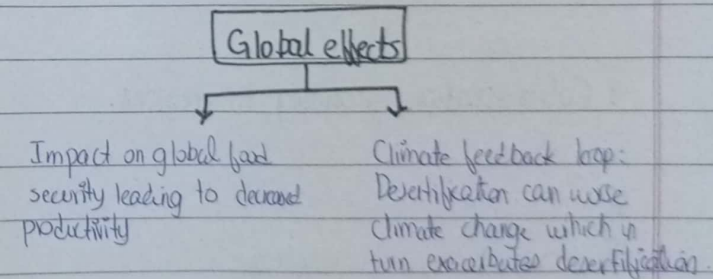 Global effects
Impact on global food
security leading to decreased
productivity
Climate feedback loop:
Desertification can worse
Climate change which in
turn exacerbates desertification.